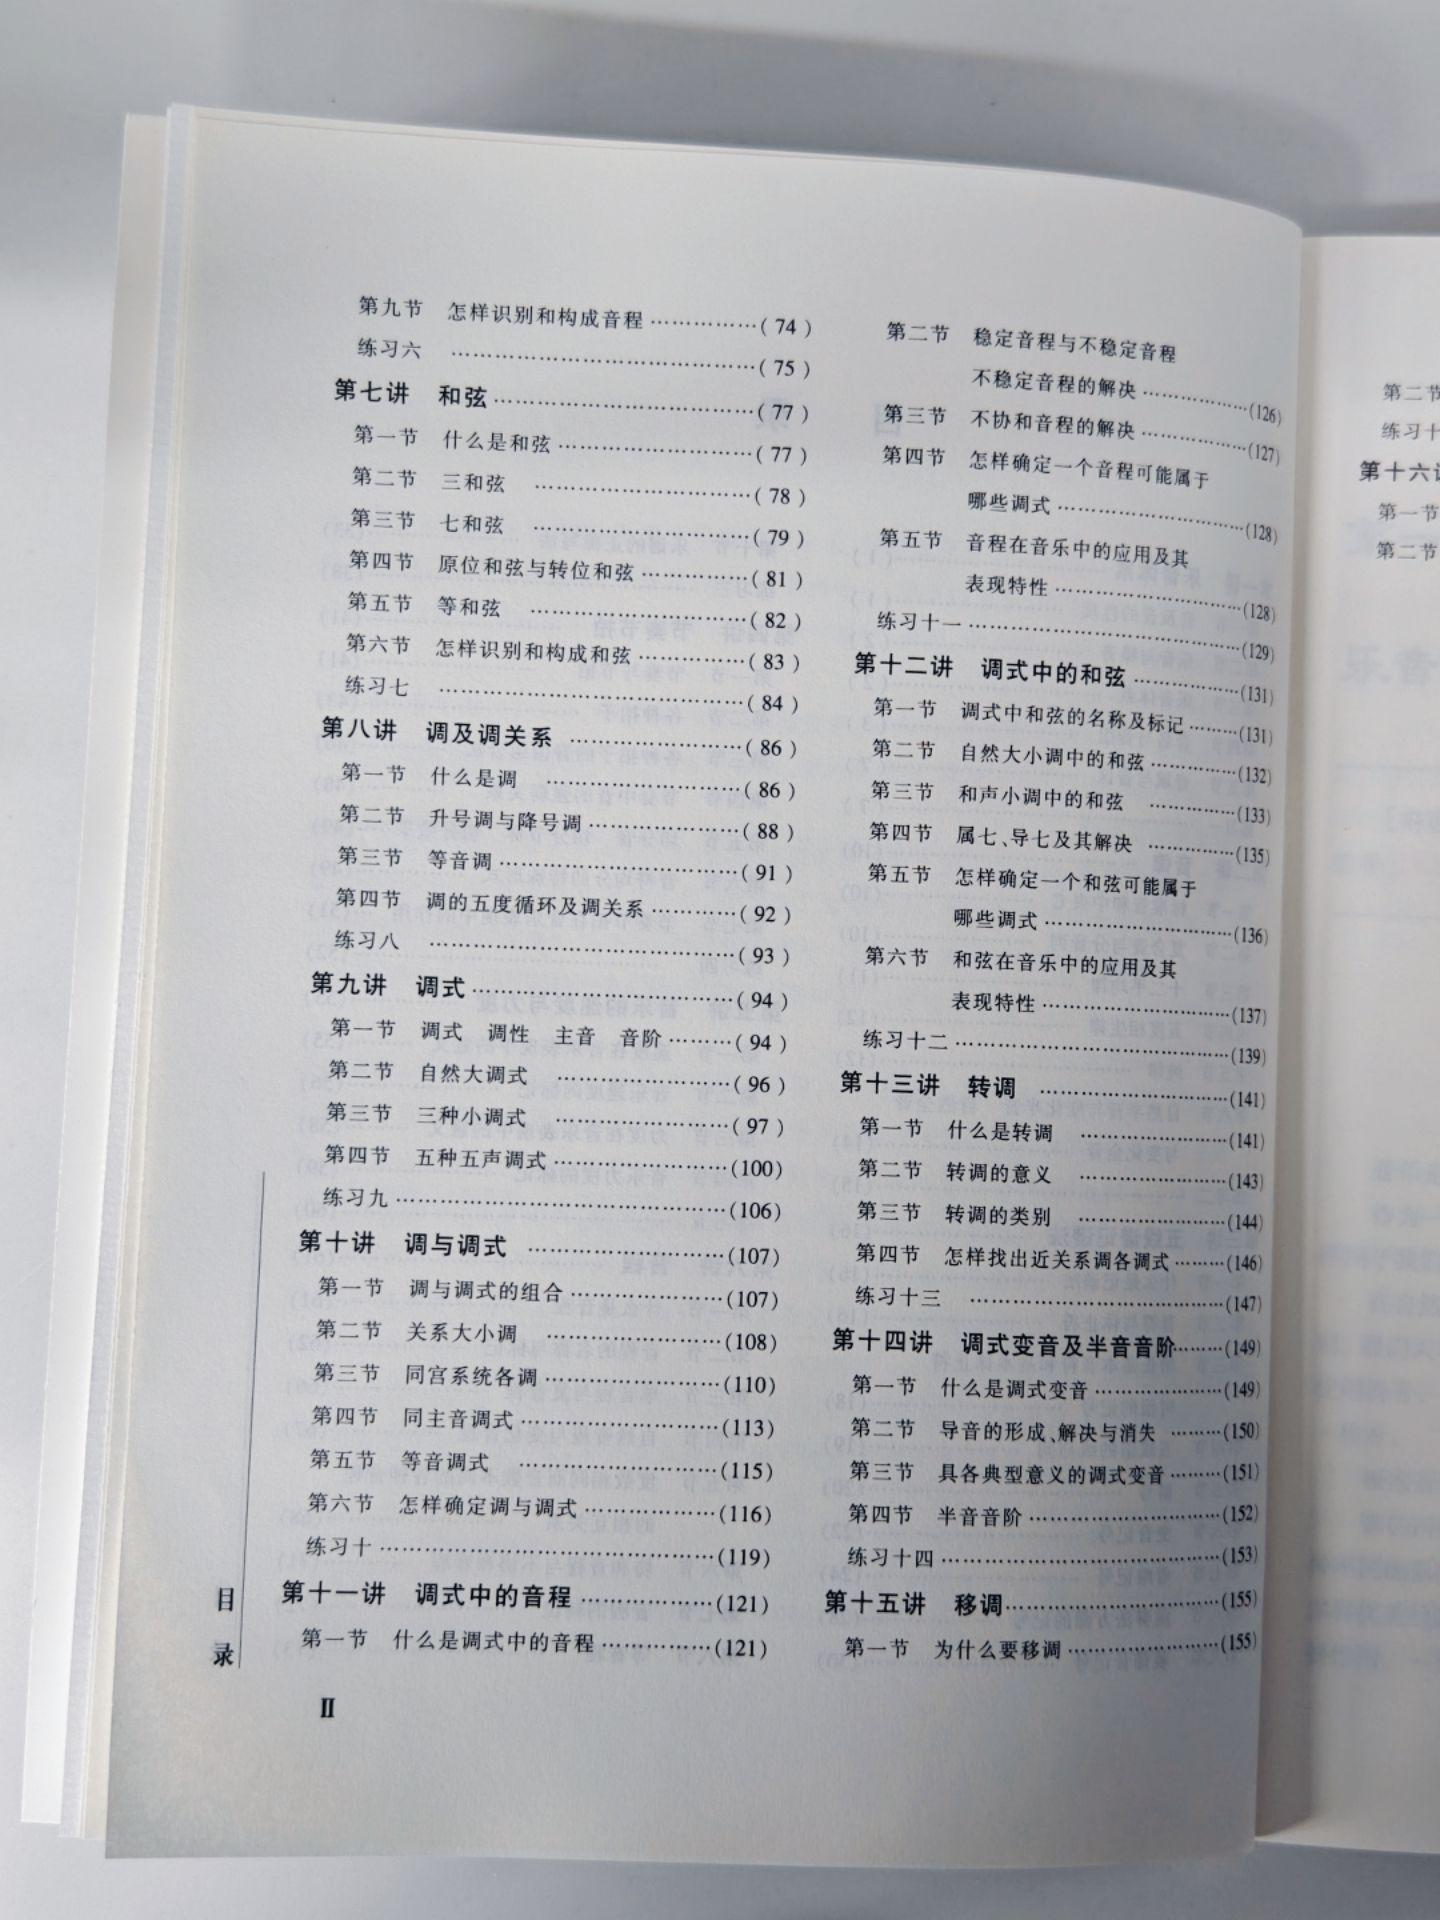 第九节 怎样识别和构成音程……………( 74 )
练习六 ……………………………………( 75 )
第七讲 和弦………………………………( 77 )
第一节 什么是和弦………………………( 77 )
第二节 三和弦 …………………………( 78 )
第三节 七和弦 …………………………( 79 )
第四节 原位和弦与转位和弦……………( 81 )
第五节 等和弦 …………………………( 82 )
第六节 怎样识别和构成和弦……………( 83 )
练习七 ……………………………………( 84 )
第八讲 调及调关系 ……………………( 86 )
第一节 什么是调 ………………………( 86 )
第二节 升号调与降号调…………………( 88 )
第三节 等音调……………………………( 91 )
第四节 调的五度循环及调关系…………( 92 )
练习八 ……………………………………( 93 )
第九讲 调式………………………………( 94 )
第一节 调式 调性 主音 音阶………( 94 )
第二节 自然大调式 ……………………( 96 )
第三节 三种小调式 ……………………( 97 )
第四节 五种五声调式……………………(100)
练习九………………………………………(106)
第十讲 调与调式 ………………………(107)
第一节 调与调式的组合…………………(107)
第二节 关系大小调 ……………………(108)
第三节 同宫系统各调……………………(110)
第四节 同主音调式………………………(113)
第五节 等音调式 ………………………(115)
第六节 怎样确定调与调式………………(116)
练习十………………………………………(119)
第十一讲 调式中的音程…………………(121)
第一节 什么是调式中的音程……………(121)
目
录
Ⅱ
第二节 稳定音程与不稳定音程
不稳定音程的解决……………(126)
第三节 不协和音程的解决……………(127)
第四节 怎样确定一个音程可能属于
哪些调式………………………(128)
第五节 音程在音乐中的应用及其
表现特性………………………(128)
练习十一……………………………………(129)
第十二讲 调式中的和弦………………(131)
第一节 调式中和弦的名称及标记………(131)
第二节 自然大小调中的和弦…………(132)
第三节 和声小调中的和弦 …………(133)
第四节 属七、导七及其解决 …………(135)
第五节 怎样确定一个和弦可能属于
哪些调式………………………(136)
第六节 和弦在音乐中的应用及其
表现特性………………………(137)
练习十二……………………………………(139)
第十三讲 转调 …………………………(141)
第一节 什么是转调 …………………(141)
第二节 转调的意义 …………………(143)
第三节 转调的类别 …………………(144)
第四节 怎样找出近关系调各调式………(146)
练习十三 …………………………………(147)
第十四讲 调式变音及半音音阶………(149)
第一节 什么是调式变音………………(149)
第二节 导音的形成、解决与消失 ………(150)
第三节 具各典型意义的调式变音………(151)
第四节 半音音阶………………………(152)
练习十四……………………………………(153)
第十五讲 移调……………………………(155)
第一节 为什么要移调…………………(155)
第二节
练习十
第十六讲
第一节
第二节